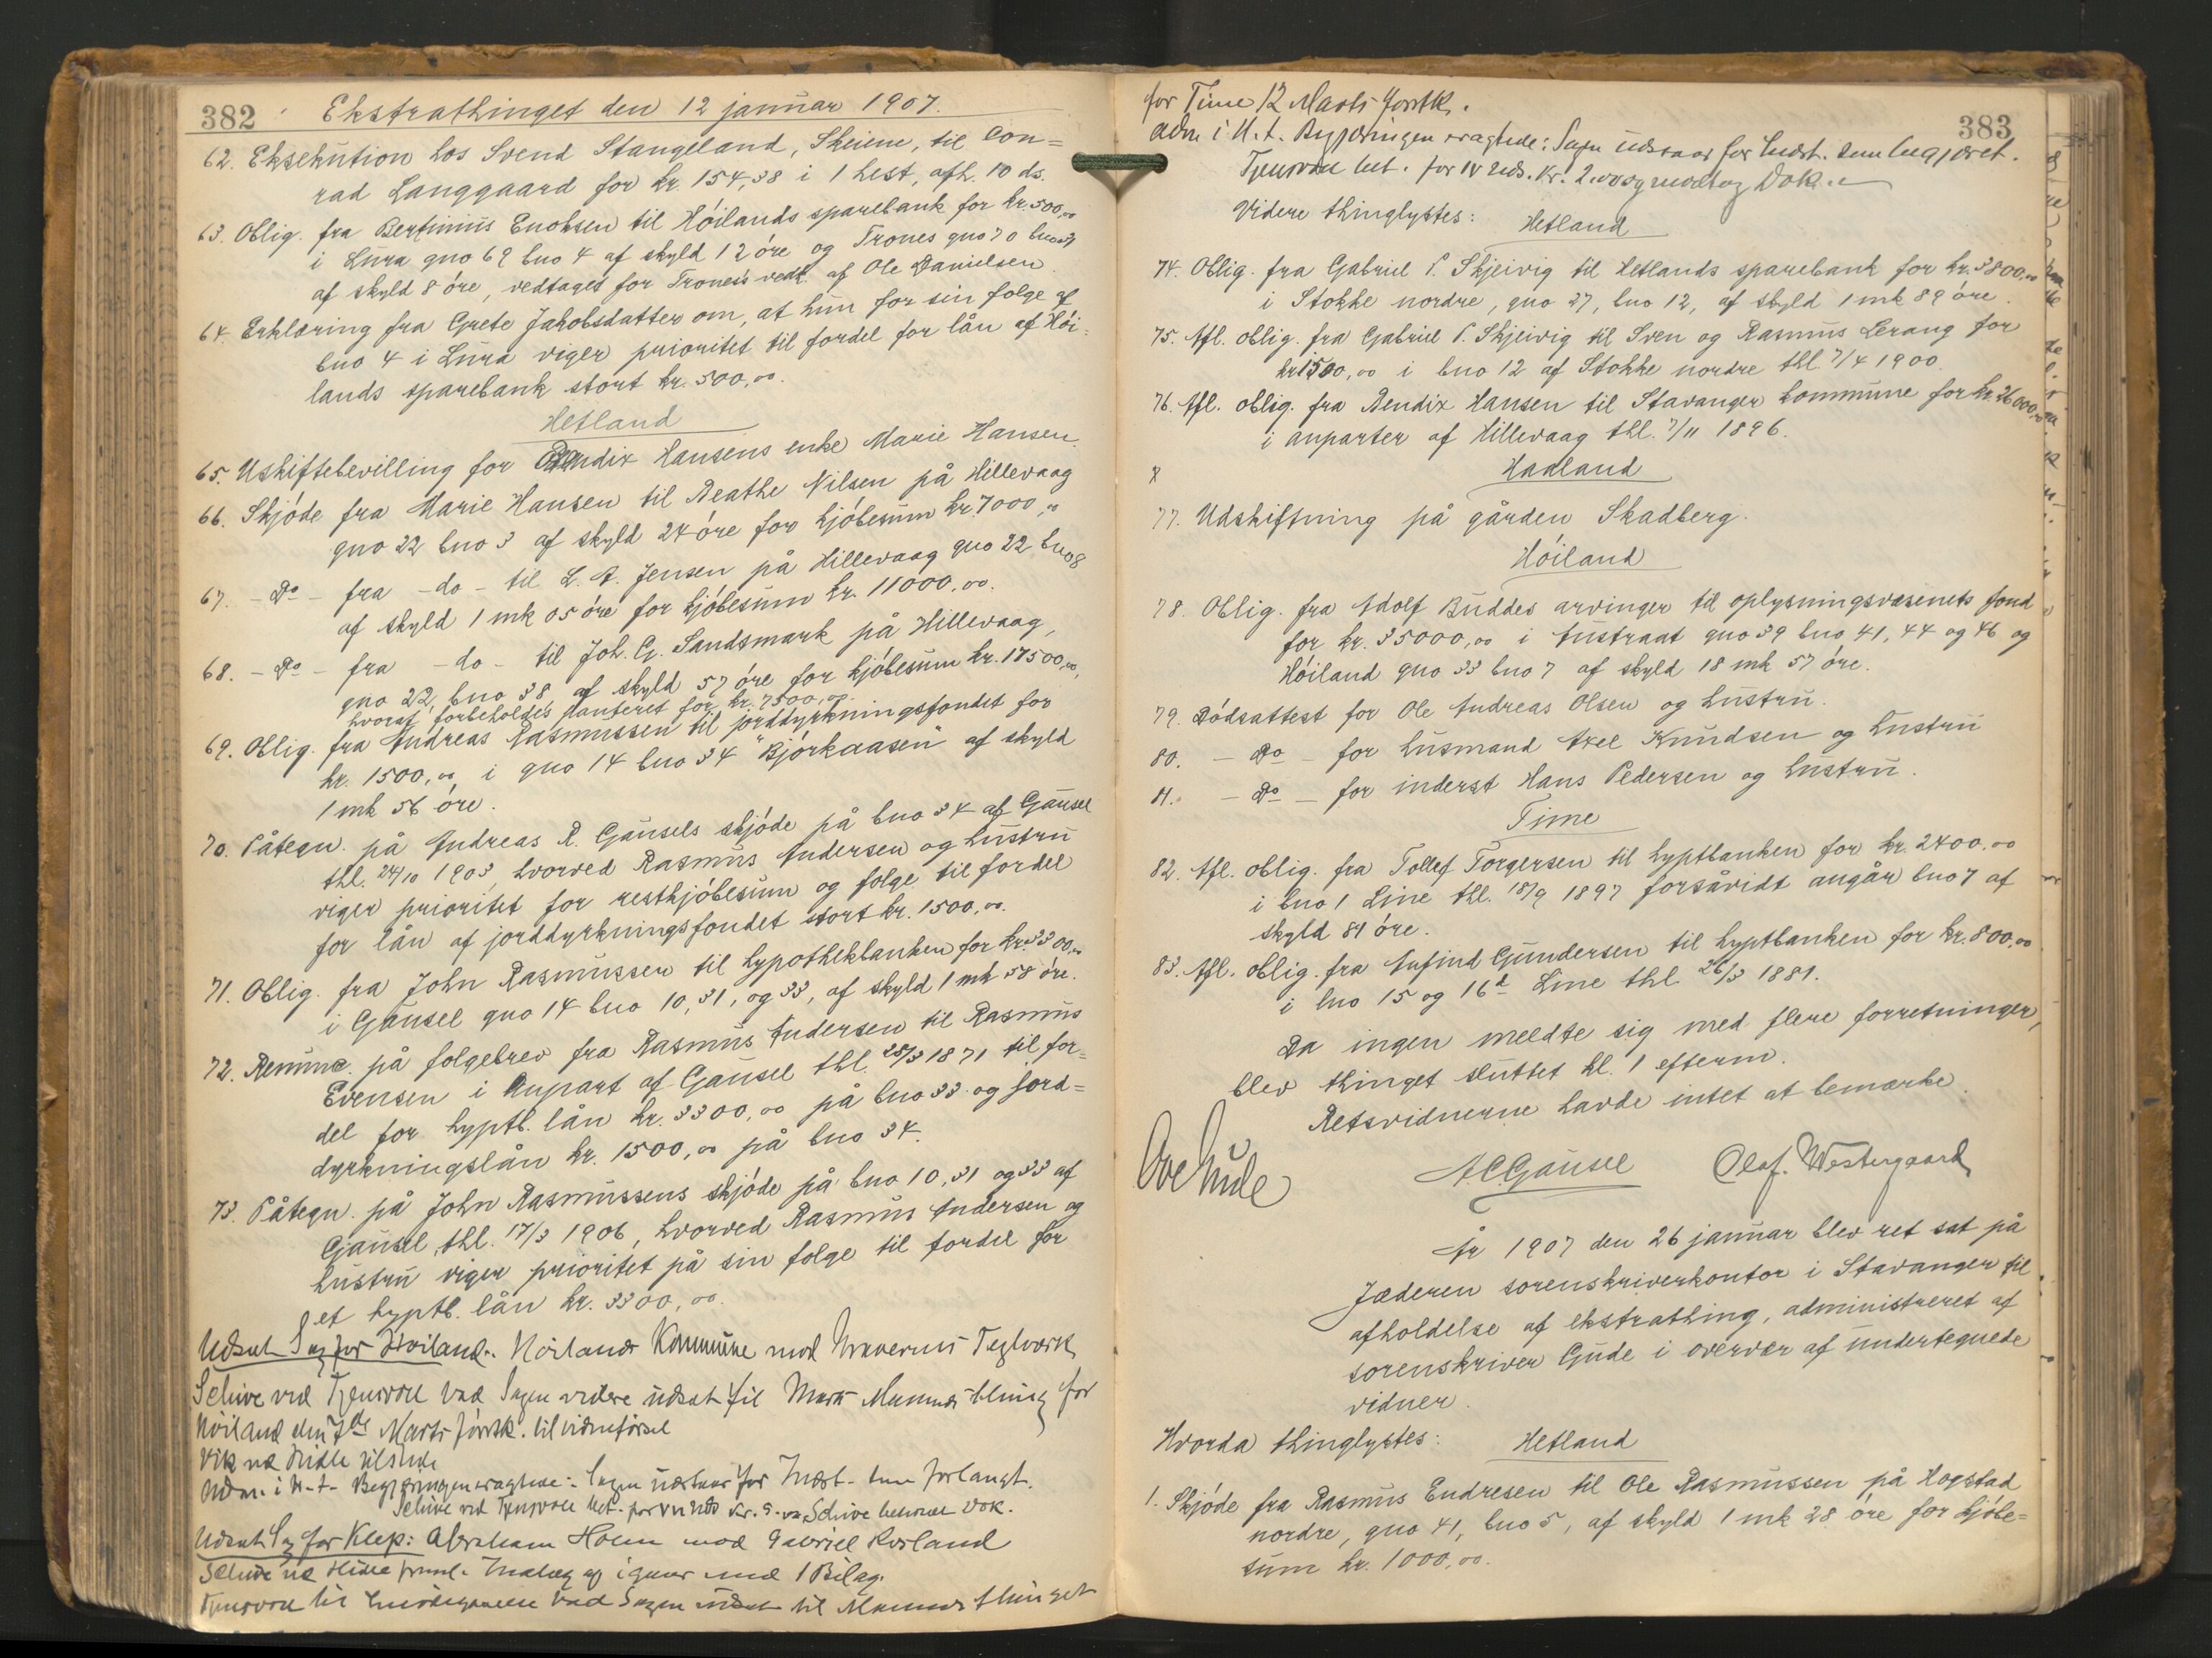 382
Ekstrathinget den 12 januar 1907.
62. Eksekution hos Svend Stangeland, Skeiene, til Con=
rad Langgaard for kr. 154,38 i 1 hest, afh. 10 ds.
63. Oblig. fra Bertinius Enoksen til Höilands sparebank for kr. 500,00
i Lura gno 69 bno 4 af skyld 12 öre og Trones gno 70 bno 31
af skyld 8 öre, vedtaget for Trones's vedk. af Ole Danielsen.
64. Erklæring fra Grete Jakobsdatter om, at hun for sin folge af
bno 4 i Lura viger prioritet til fordel for lån af Höi=
lands sparebank stort kr. 500,00.
Hetland
65. Uskiftebevilling for Bendix Hansens enke Marie Hansen.
66. Skjöde fra Marie Hansen til Beathe Nilsen på Hillevaag
gno 22 bno 3 af skyld 24 öre for kjöbesum kr. 7000,00
67. - Do - fra - do - til L. A. Jensen på Hillevaag gno 22 bno 8
af skyld 1 mk 05 öre for kjöbesum kr. 11000,00.
68. - Do - fra - do - til Joh. G. Sandsmark på Hillevaag,
gno 22, bno 38 af skyld 57 öre for kjöbesum kr. 17500,00,
hvoraf forbeholdes panteret for kr. 7500,00.
69. Oblig. fra Andreas Rasmussen til jorddyrkningsfondet for
kr. 1500,00 i gno 14 bno 34 "Björkaasen" af skyld
1 mk 56 öre.
70. Påtegn. på Andreas R. Gausels skjöde på bno 34 af Gausel
thl. 24/10 1903, hvorved Rasmus Andersen og hustru
viger prioritet for restkjöbesum og folge til fordel
for lån af jorddyrkningsfondet stort kr. 1500,00.
71. Oblig. fra John Rasmussen til hypothekbanken for kr. 3300,00
i Gausel gno 14 bno 10, 31, og 33, af skyld 1 mk 58 öre.
72. Renunc. på folgebrev fra Rasmus Andersen til Rasmus
Evensen i Anpart af Gausel thl. 28/3 1871 til for=
del for hyptb. lån kr. 3300,00 på bno 33 og jord=
dyrkningslån kr. 1500,00 på bno 34.
73. Påtegn. på John Rasmussens skjöde på bno 10, 31 og 33 af
Gausel, thl. 17/3 1906, hvorved Rasmus Andersen og
hustru viger prioritet på sin folge til fordel for
et hyptb. lån kr. 3300,00.
Udsat Sag for Höiland. Höilands Kommune mod Teglværk
Schive ved Tjensvoll bad Sagen videre udsat til for
Höiland den 7de Marts förstk. til vidneförsel
Adm. i H. t. Begjæringen eragtede: Sagen udstaar for Indst. som forlangt.
Schive ved Tjensvoll bet. for Kr. Schive Dok.
Udsat Sag for Klep: Abraham Holm mod Gabriel Horland
Schive Indlæg af igaar med 1 Bilag.
Tjensvoll bad Sagen udsat til thinget
383
for Time 12 Marts förstk.
Adm. i H. t. Begjæringen eragtede: Sagen udstaar for Indst. som begjæret.
Tjensvoll bet. for Kr. 2.00 og modtog Dok.
Videre thinglystes:
Hetland
74. Oblig. fra Gabriel P. Skjeivig til Hetlands sparebank for kr. 3800,00
i Stokke nordre, gno 37, bno 12, af skyld 1 mk 89 öre.
75. Afl. oblig. fra Gabriel P. Skjeivig til Sven og Rasmus Lerang for
kr 1500,00 i bno 12 af Stokke nordre thl. 7/4 1900.
76. Afl. oblig. fra Bendix Hansen til Stavanger kommune for kr. 26000,00
i anparter af Hillevaag thl. 7/11 1896.
Haaland
77. Udskiftning på gården Skadberg.
Höiland
78. Oblig. fra Adolf Buddes arvinger til oplysningsvæsenets fond
for kr. 35000,00 i Austraat gno 39 bno, 41, 44 og 46 og
Höiland gno 33 bno 7 af skyld 18 mk 57 öre.
79. Dödsattest for Ole Andreas Olsen og hustru.
80. - Do - for husmand Axel Knudsen og hustru
81. - Do - for inderst Hans Pedersen og hustru.
Time
82. Afl. oblig. fra Tollef Torgersen til hyptbanken for kr. 2400.00
i bno 1 Line thl. 18/9 1897 forsåvidt angår bno 7 af
skyld 81 öre.
83. Afl. oblig. fra Anfind Gundersen til hyptbanken for kr. 800,00
i bno 15 og 16 Line thl 26/3 1881.
Da ingen meldte sig med flere forretninger,
blev thinget sluttet kl. 1 efterm.
Retsvidnerne havde intet at bemærke.
Ove Gude A C Gausel Olaf. Westergaard
År 1907 den 26 januar blev ret sat på
Jæderen sorenskriverkontor i Stavanger til
afholdelse af ekstrathing, administreret af
sorenskriver Gude i overvær af undertegnede
vidner.
Hvorda thinglystes:
Hetland
1. Skjöde fra Rasmus Endresen til Ole Rasmussen på Hogstad
nordre, gno 41, bno 5, af skyld 1 mk 28 öre for kjöbe=
sum kr. 1000,00.